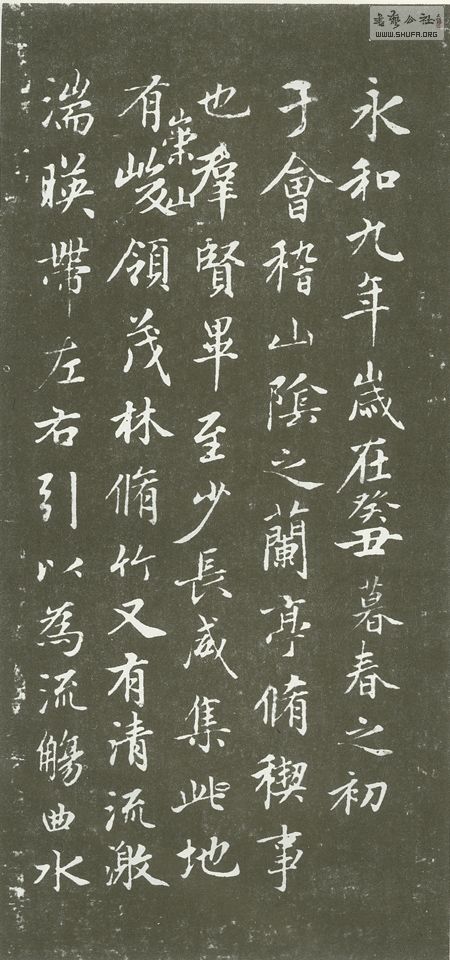 永和九年歲在癸丑暮春之初
于會稽山陰之蘭亭脩稧事
也羣賢畢至少長咸集此地
有崇山峻領茂林脩竹又有清流激
湍暎帶左右引以為流觴曲水
書藝公社
WWW.SHUFA.ORG